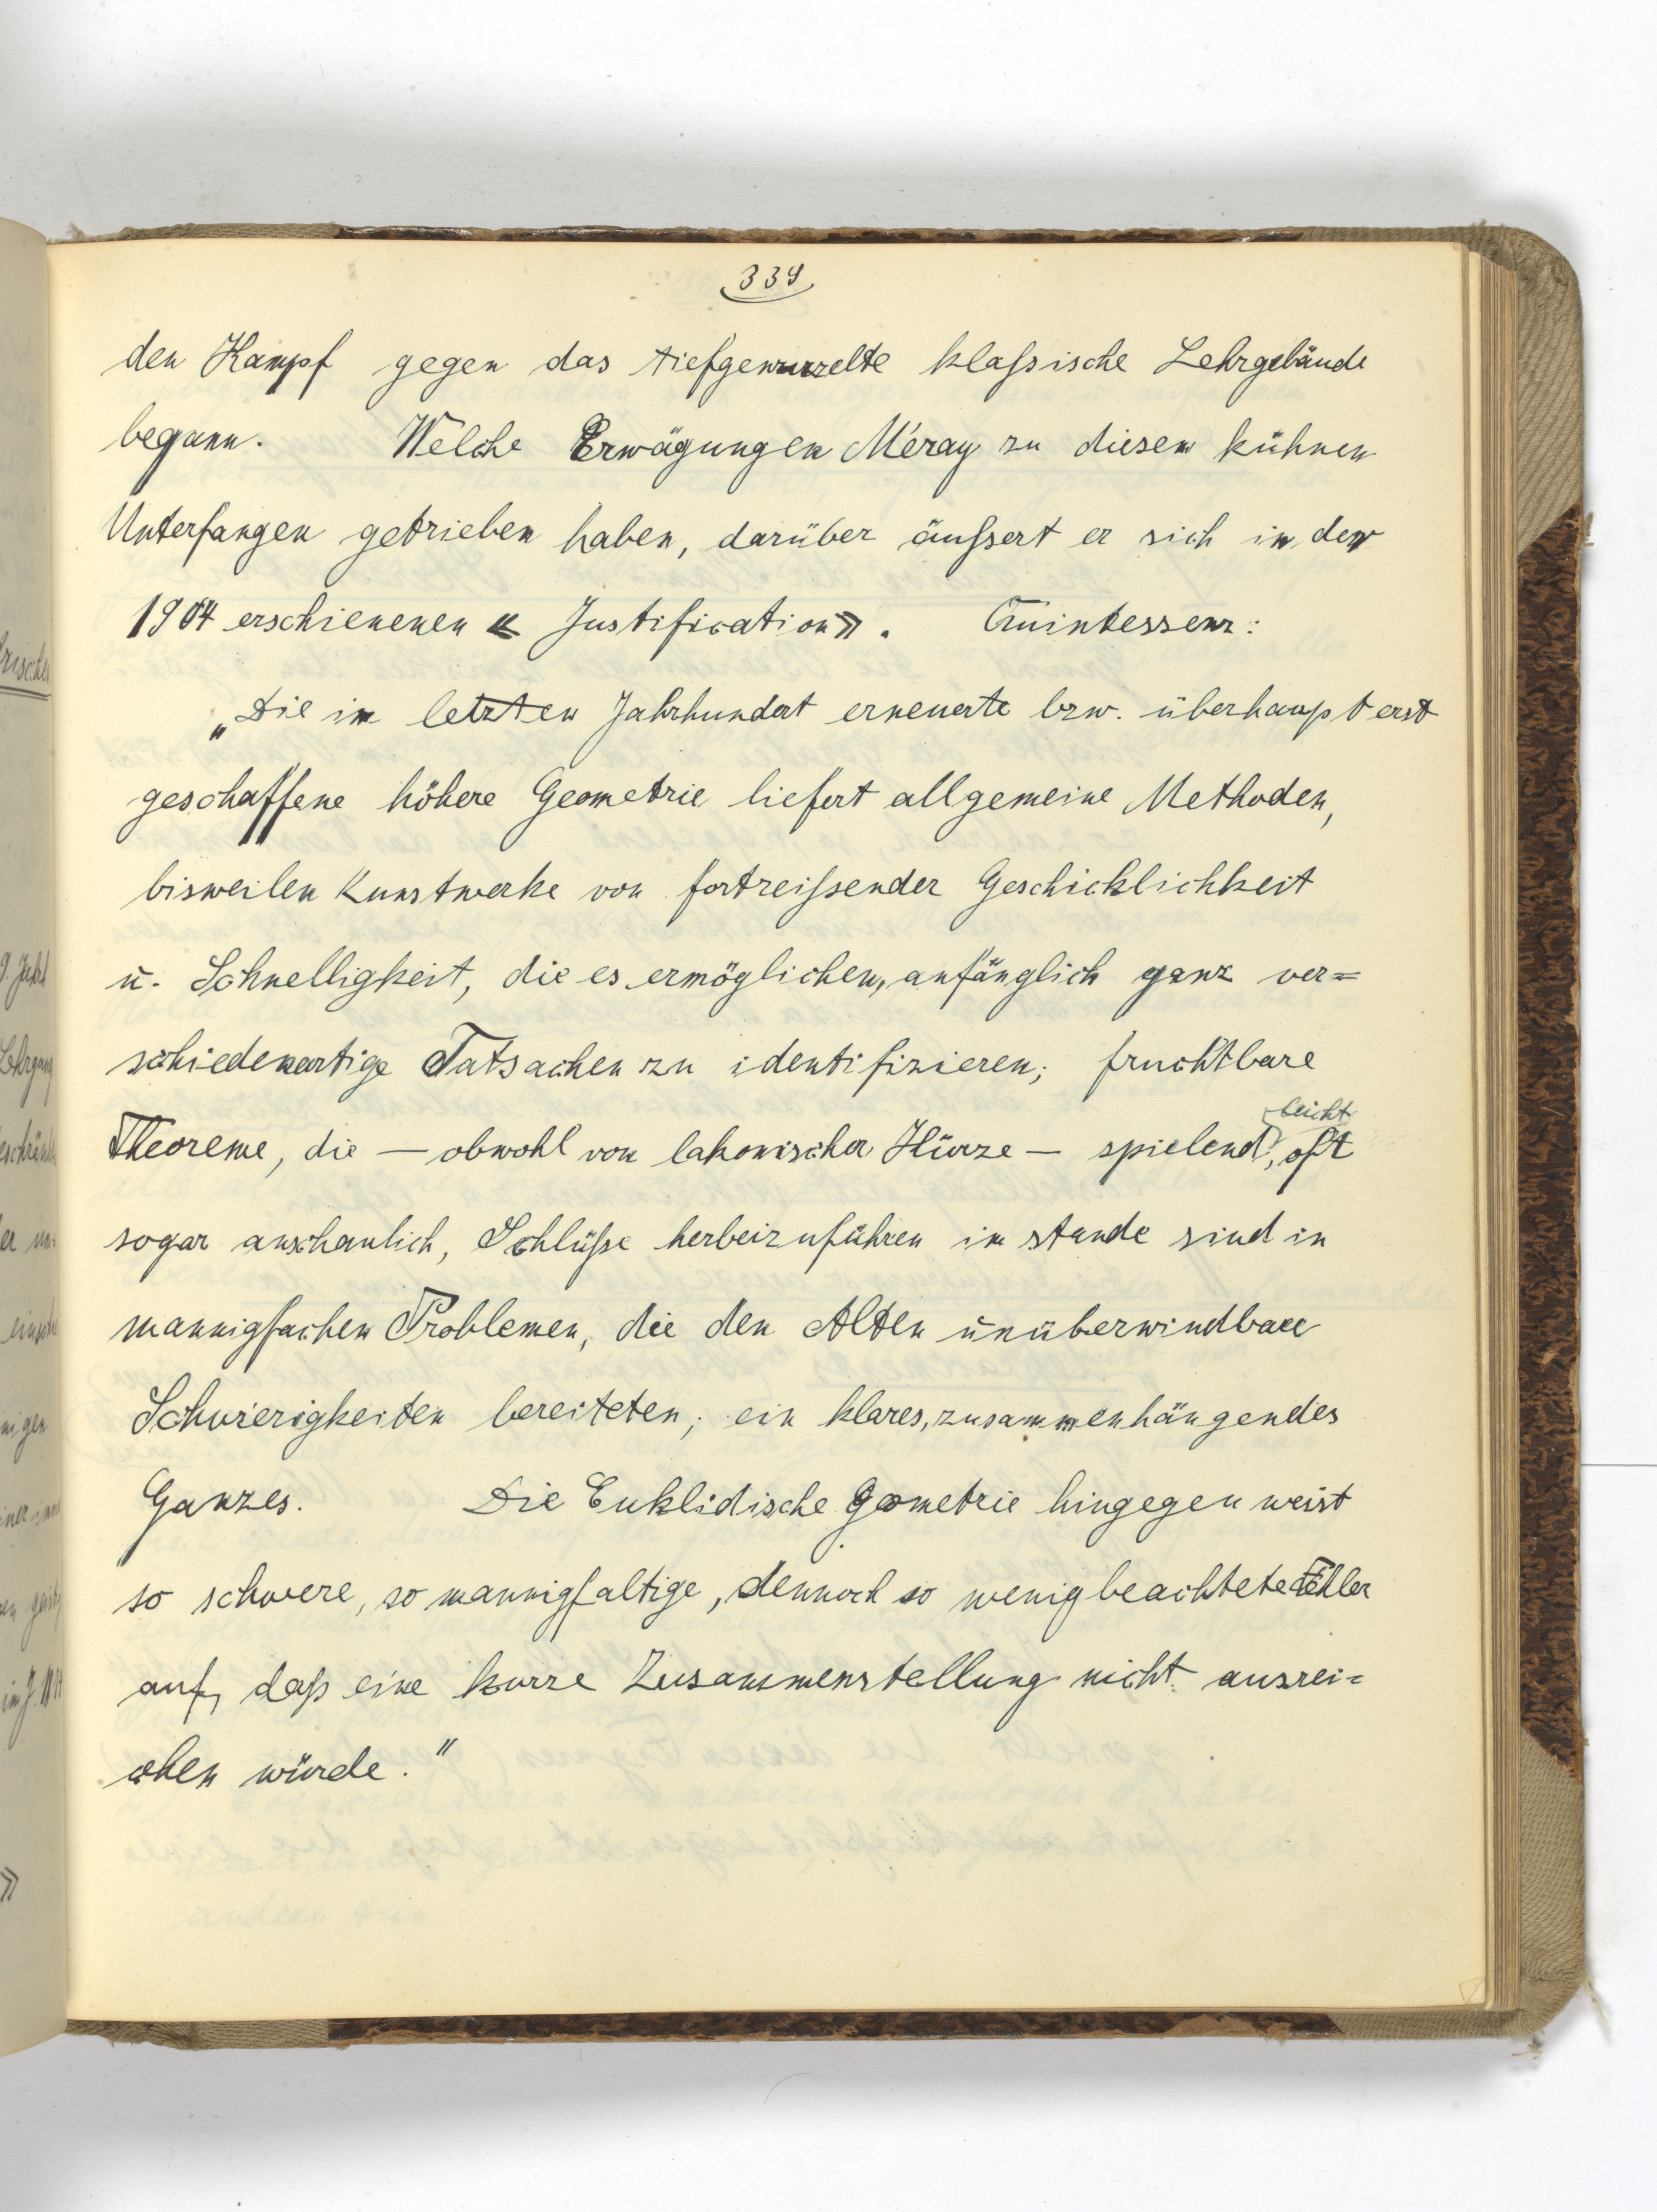 339
den Kampf gegen das tiefgewurzelte klaßische Lehrgebäude
begann. Welche Erwägungen Méray zu diesem kühnen
Unterfangen getrieben haben, darüber äußert er sich in der
1904 erschienenen « Justification». Quintessenz:
„Die im letzten Jahrhundert erneuerte bzw. überhaupt erst
geschaffene höhere Geometrie liefert allgemeine Methoden,
bisweilen Kunstwerke von fortreißender Geschicklichkeit
u. Schnelligkeit, die es ermöglichen, anfänglich ganz ver=
schiedenartige Tatsachen zu identifizieren; fruchtbare
Theoreme, die — obwohl von lakonischer Kürze — spielend leicht, oft
sogar anschaulich, Schlüße herbeizuführen im stande sind in
mannigfachen Problemen, die den Alten unüberwindbare
Schwierigkeiten bereiteten; ein klares, zusammenhängendes
Ganzes. Die Euklidische Geometrie hingegen weist
so schwere, so mannigfaltige, dennoch so wenig beachtete Fehler
auf, daß eine kurze Zusammenstellung nicht ausrei=
chen würde."